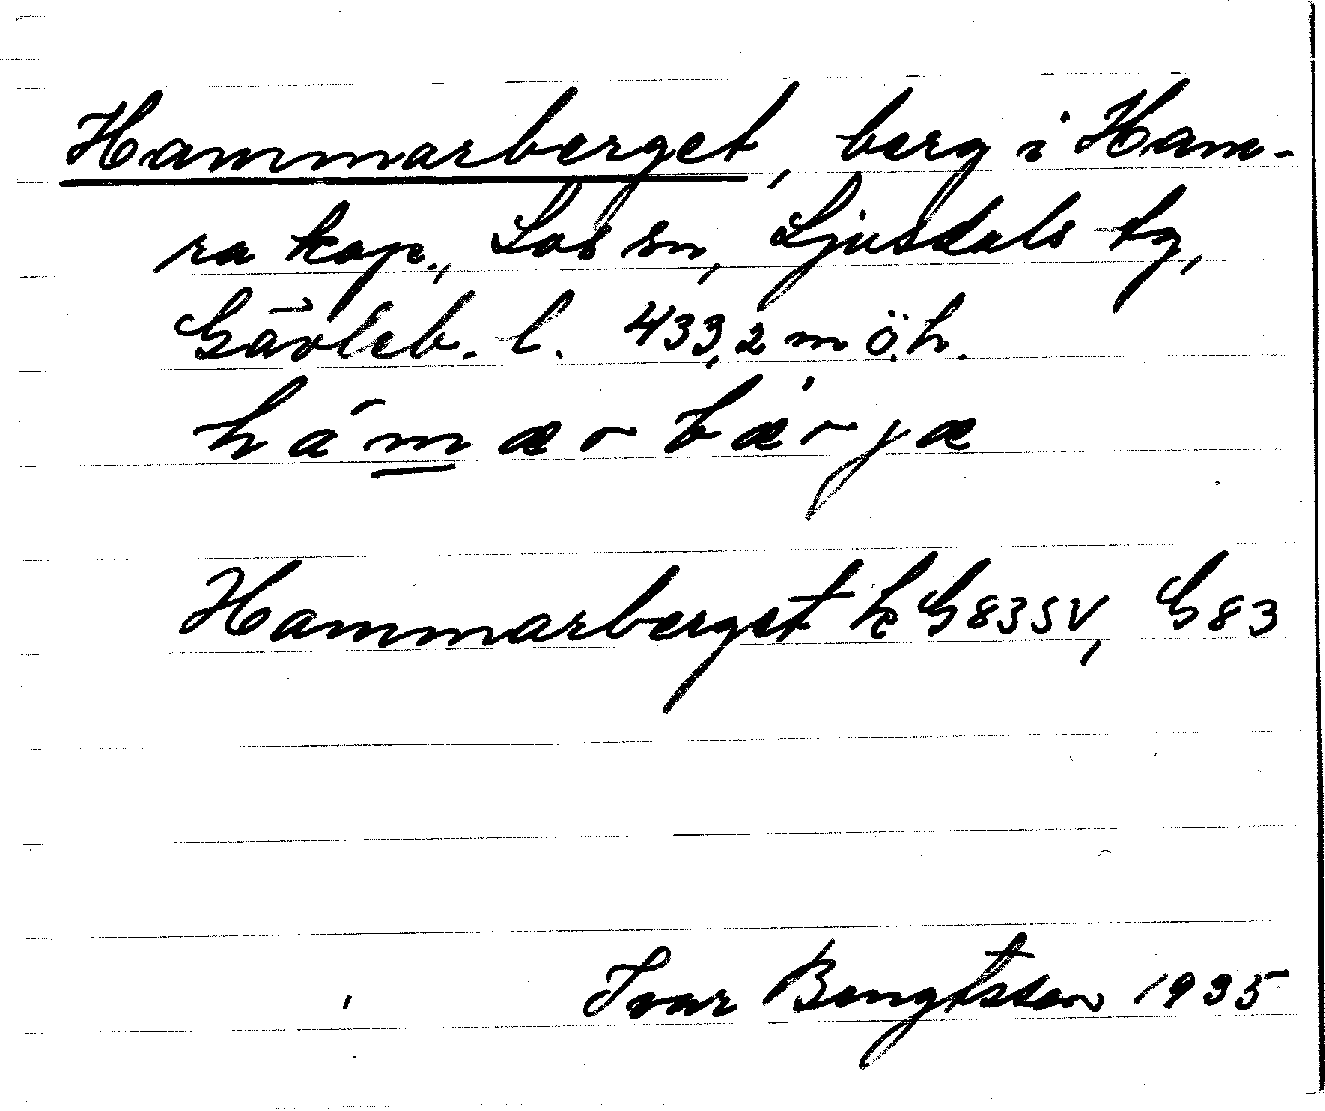 Hammarberget, berg i Ham-
ra kap., Los sn, Ljusdals tg,
Gävleb. l. 433,2 m ö.h.
hámærbærjæ
Hammarberget k G83SV, G83
Ivar Bengtsson 1935